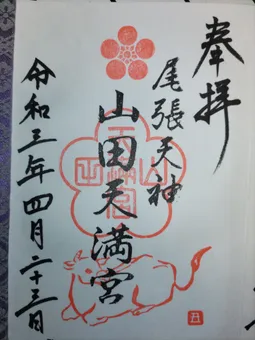 奉拝
尾張天神
山田天満宮
令和三年四月二十三日
丑